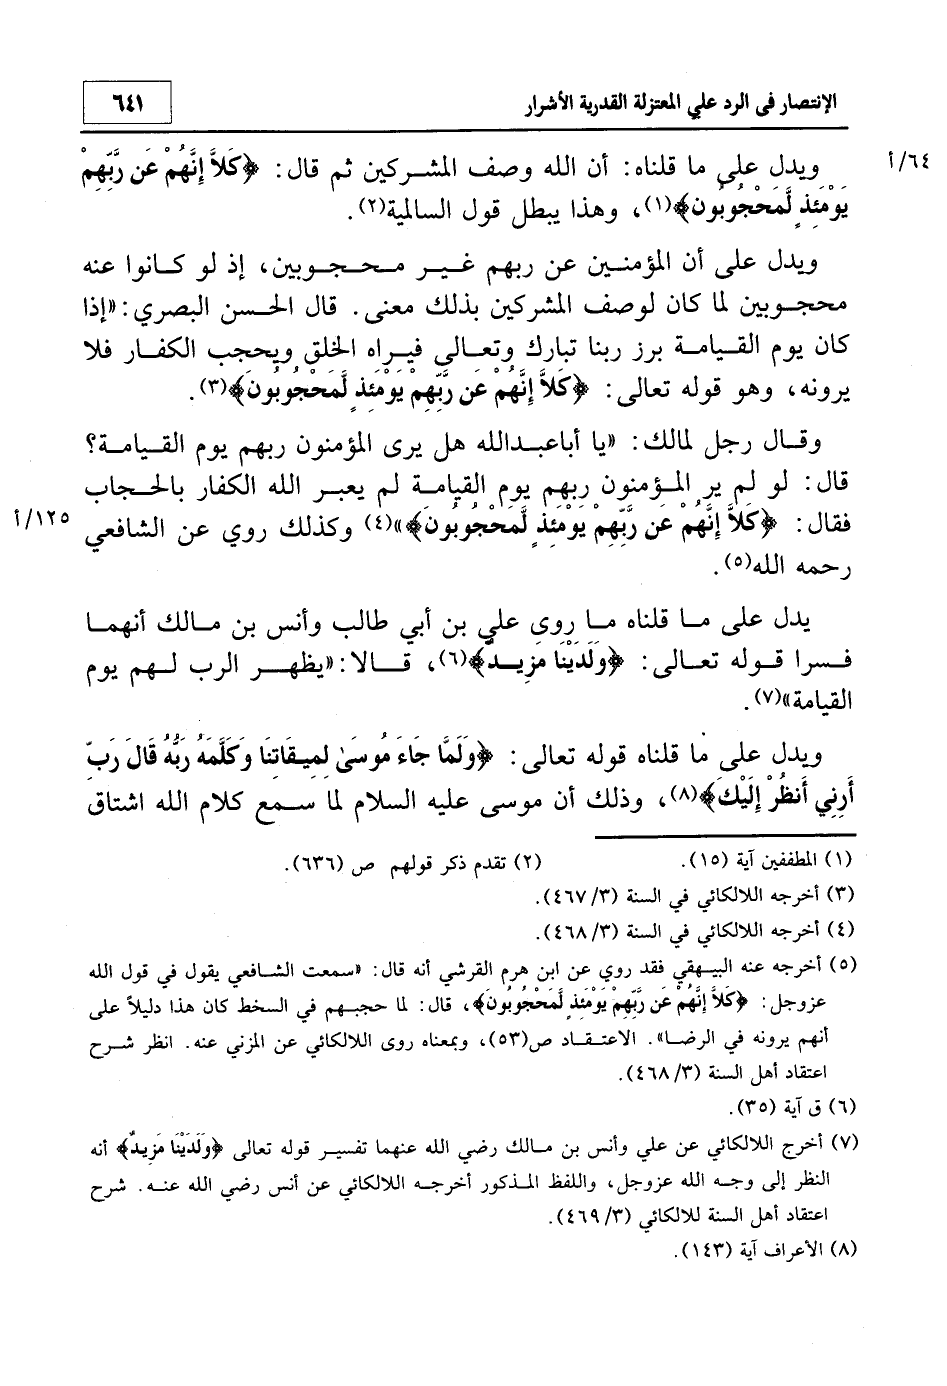 الإنتصار في الرد علي المعتزلة القدرية الأشرار
٦٤١
ويدل على ما قلناه: أن الله وصف المشركين ثم قال: ﴿كَلاَّ إِنَّهُمْ عَن رَّبِّهِمْ
٦٤/أ
يَوْمَئِذٍ لَّمَحْجُوبُون﴾(١)، وهذا يبطل قول السالمية(٢).
ويدل على أن المؤمنين عن ربهم غير محجوبين، إذ لو كانوا عنه
محجوبين لما كان لوصف المشركين بذلك معنى. قال الحسن البصري: «إذا
كان يوم القيامة برز ربنا تبارك وتعالى فيراه الخلق ويحجب الكفار فلا
يرونه، وهو قوله تعالى: ﴿كَلاَّ إِنَّهُمْ عَن رَّبِّهِمْ يَوْمَئِذٍ لَّمَحْجُوبُونَ﴾(٣).
وقال رجل لمالك: «يا أباعبدالله هل يرى المؤمنون ربهم يوم القيامة؟
قال: لو لم ير المؤمنون ربهم يوم القيامة لم يعبر الله الكفار بالحجاب
فقال: ﴿كَلاَّ إِنَّهُمْ عَن رَّبِّهِمْ يَوْمَئِذٍ لَّمَحْجُوبُونَ﴾»(٤) وكذلك روي عن الشافعي
١٢٥/أ
رحمه الله(٥).
يدل على ما قلناه ما روى علي بن أبي طالب وأنس بن مالك أنهما
فسرا قوله تعالى: ﴿وَلَدَيْنَا مَزِيد﴾(٦)، قالا: «يظهر الرب لهم يوم
القيامة»(٧).
ويدل على ما قلناه قوله تعالى: ﴿وَلَمَّا جَاءَ مُوسَىٰ لِمِيقَاتِنَا وَكَلَّمَهُ رَبُّهُ قَالَ رَبِّ
أَرِنِي أَنظُرْ إِلَيْكَ﴾(٨)، وذلك أن موسى عليه السلام لما سمع كلام الله اشتاق
(١) المطففين آية (١٥). (٢) تقدم ذكر قولهم ص (٦٣٦).
(٣) أخرجه اللالكائي في السنة (٤٦٧/٣).
(٤) أخرجه اللالكائي في السنة (٤٦٨/٣).
(٥) أخرجه عنه البيهقي فقد روي عن ابن هرم القرشي أنه قال: «سمعت الشافعي يقول في قول الله
عزوجل: ﴿كَلاَّ إِنَّهُمْ عَن رَّبِّهِمْ يَوْمَئِذٍ لَّمَحْجُوبُونَ﴾، قال: لما حجبهم في السخط كان هذا دليلاً على
أنهم يرونه في الرضا». الاعتقاد ص(٥٣)، وبمعناه روى اللالكائي عن المزني عنه. انظر شرح
اعتقاد أهل السنة (٤٦٨/٣).
(٦) ق آية (٣٥).
(٧) أخرج اللالكائي عن علي وأنس بن مالك رضي الله عنهما تفسير قوله تعالى ﴿وَلَدَيْنَا مَزِيدٌ﴾ أنه
النظر إلى وجه الله عزوجل، واللفظ المذكور أخرجه اللالكائي عن أنس رضي الله عنه. شرح
اعتقاد أهل السنة للالكائي (٤٦٩/٣).
(٨) الأعراف آية (١٤٣).